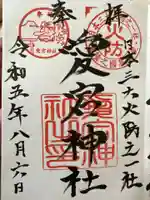 奉拝
日本三大火防之一社
火防
愛宕神社
愛宕神社
令和五年八月六日